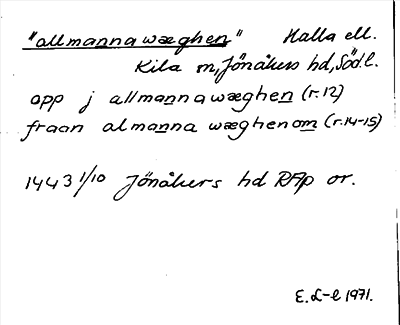 "allmanna wæghen" Halla ell.
Kila sn, Jönåkers hd, Södl.
opp j allmanna wæghen (r.12)
fraan almanna wæghenom (r.14-15)
1443 1/10 Jönåkers hd RAp or.
E. L-e 1971.